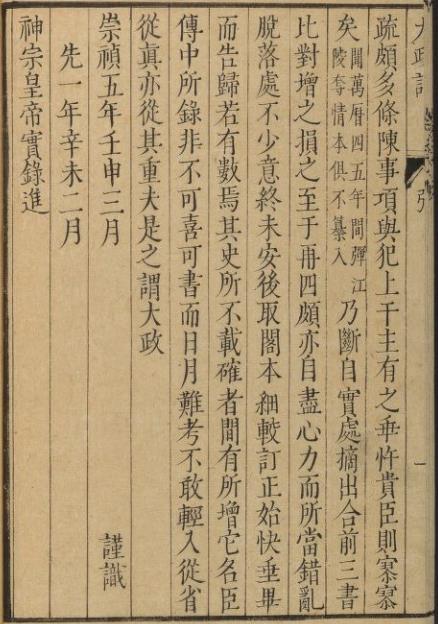 大政記
引
一
疏頗多條陳事項與犯上干主有之乖忤貴臣則寥寥
矣
聞萬曆四五年間彈江
陵奪情本俱不纂入
乃斷自實處摘出合前三書
比對增之損之至于再四頗亦自盡心力而所當錯亂
脫落處不少意終未安後取閣本細較訂正始快垂畢
而告歸若有數焉其史所不載確者間有所增它名臣
傳中所錄非不可喜可書而日月難考不敢輕入從省
從真亦從其重夫是之謂大政
崇禎五年壬申三月
謹識
先一年辛未二月
神宗皇帝實錄進